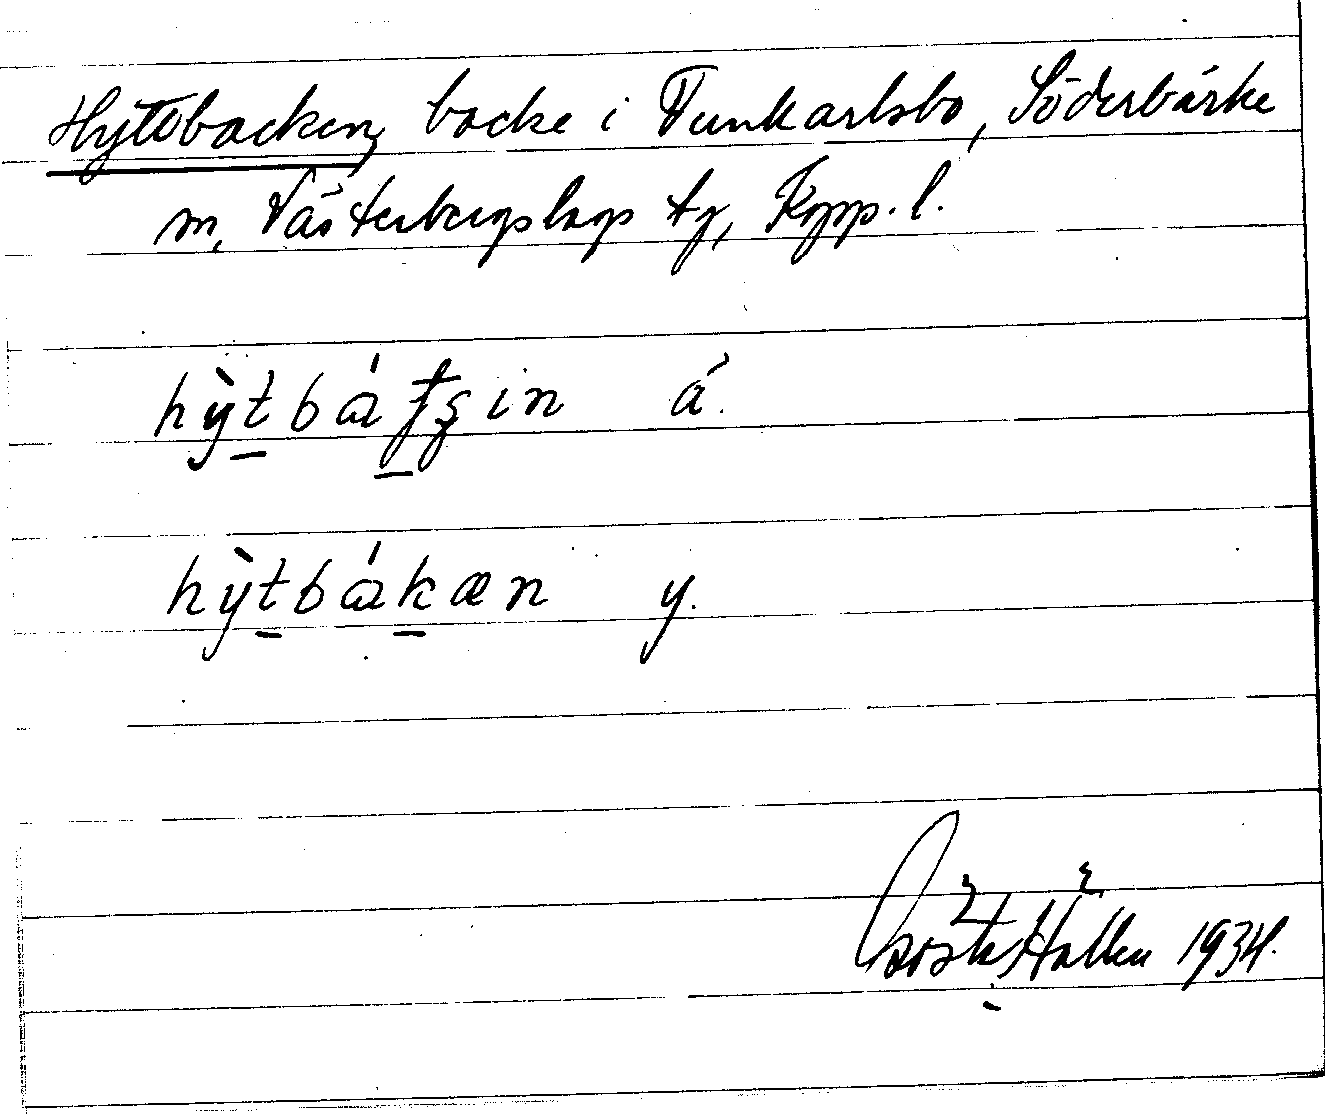 Hyttbacken, backe i Tunkarlsbo, Söderbärke
m, Västerbergslags tg, Kopp. l.
hỳt̠bá f̠ʂin á.
hỳt̠bák̠æn y.
Gösta Hallen 1934.